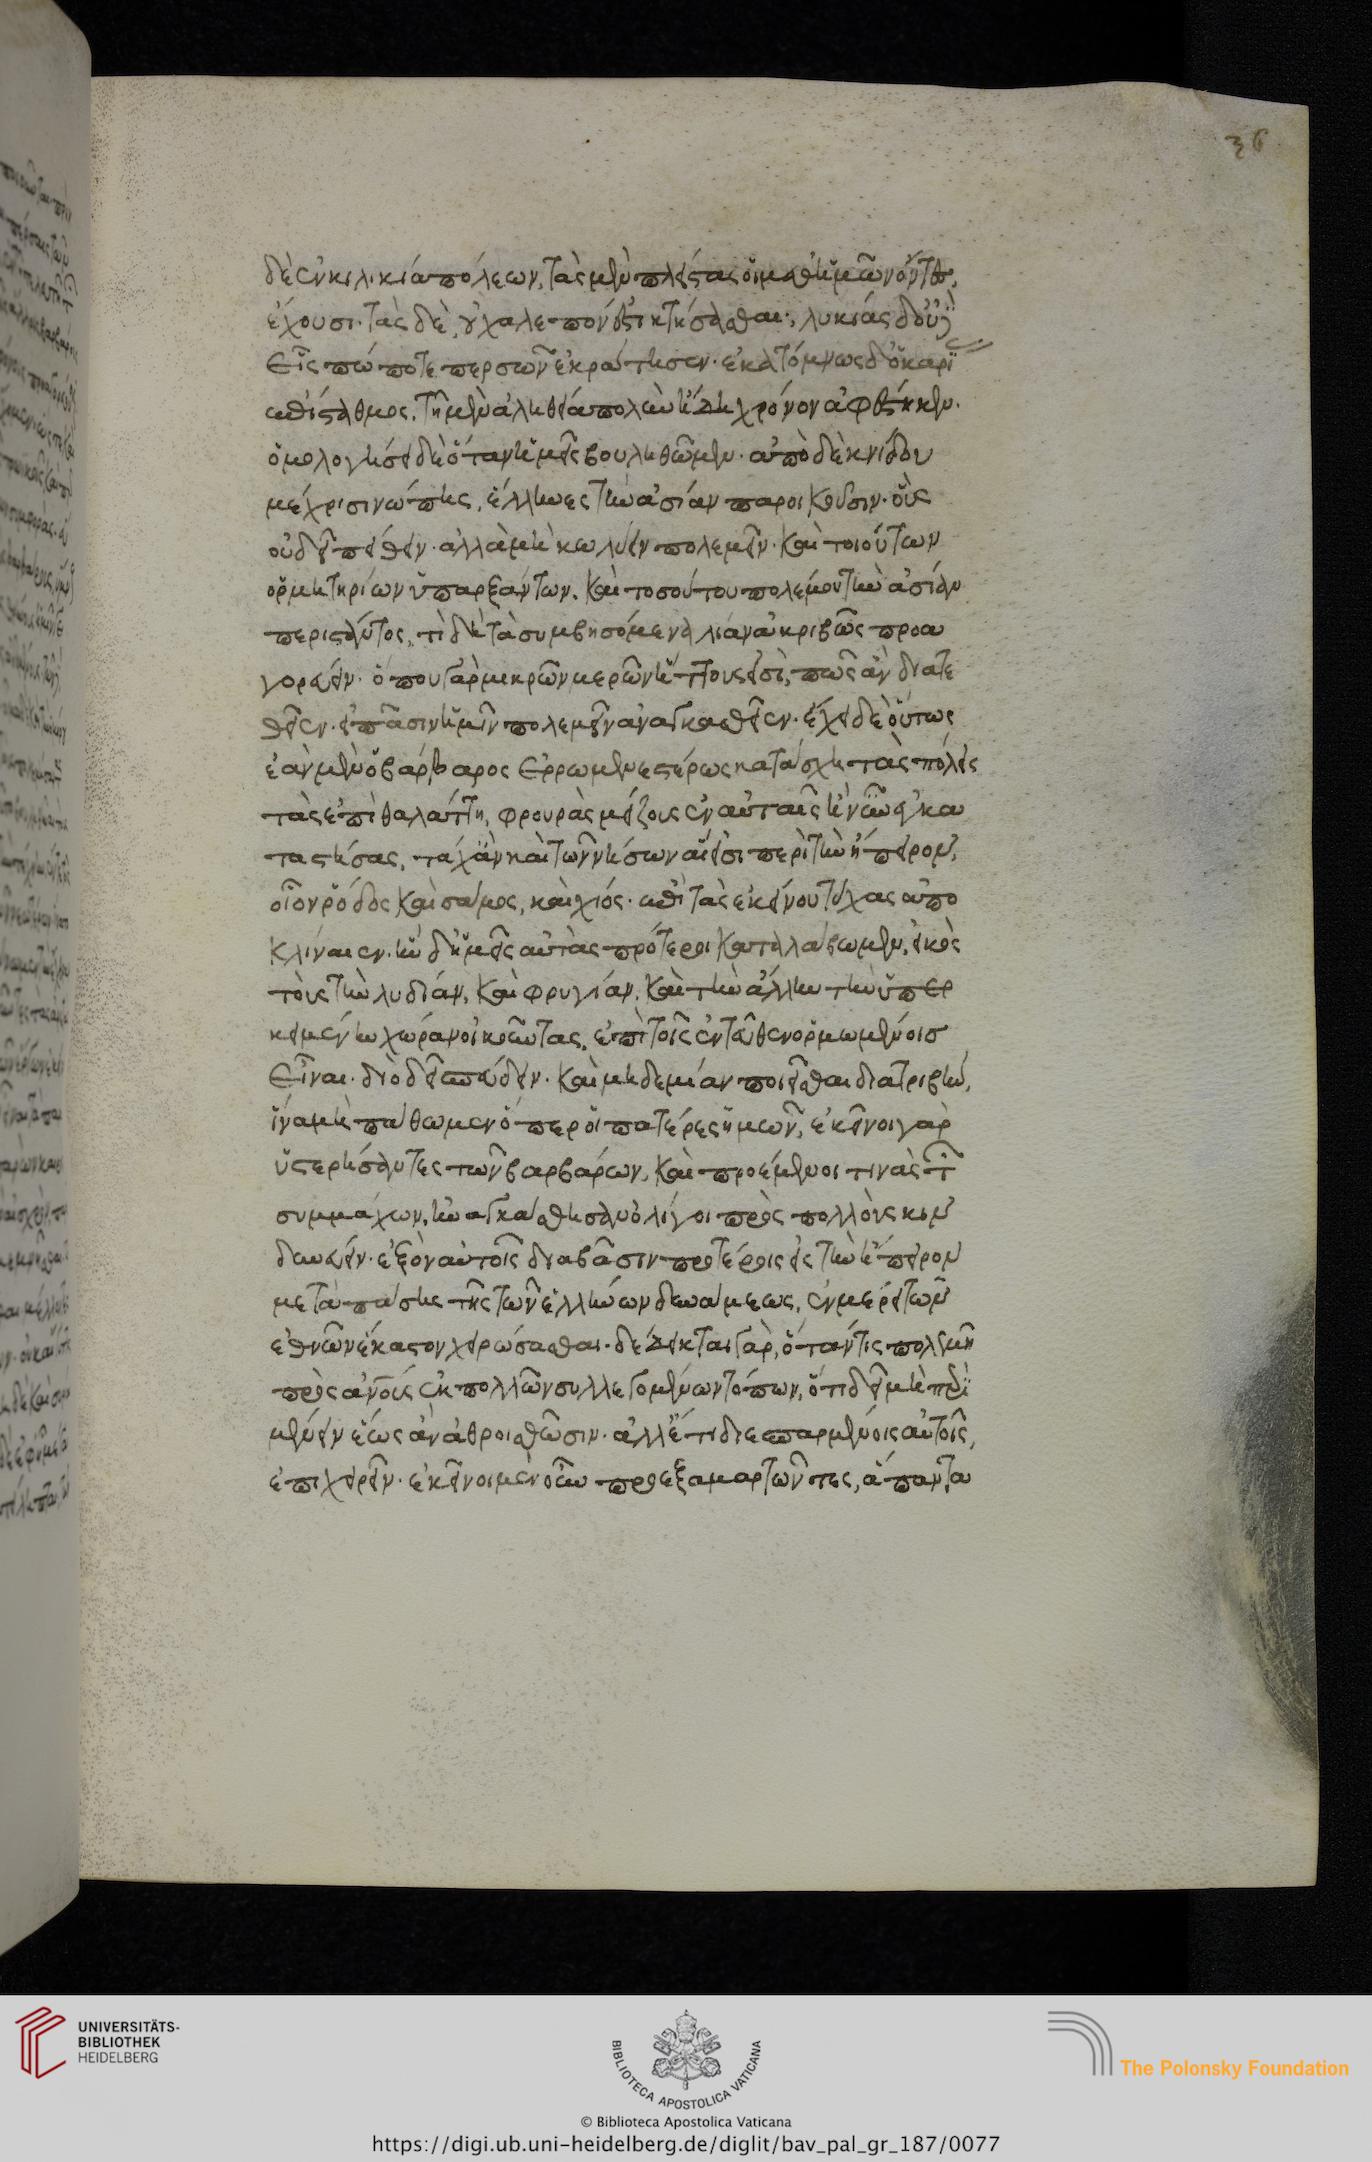 36
δὲ ἐν κιλικία πόλεων, τὰς μὲν πλείστας οἱ μεθ' ἡμῶν ὄντες,
ἔχουσι· τὰς δὲ, οὐ χαλεπὸν ἐστὶ κτήσασθαι· λυκίας δ' οὐδ'
εἷς πώποτε περσῶν ἐκράτησεν· ἑκατόμνως δ' ὁ καρί
ας ἐπίσταθμος, τῇ μὲν ἀληθεία πολὺν ἤδη χρόνον ἀφέστηκεν·
ὁμολογήσει δὲ ὅταν ἡμεῖς βουληθῶμεν· ἀπὸ δὲ κνίδου
μέχρι σινώπης, ἕλληνες τὴν ἀσίαν παροικοῦσιν· οὓς
οὐ δεῖ πείθειν· ἀλλὰ μὴ κωλύειν πολεμεῖν· καὶ τοιούτων
ὁρμητηρίων ὑπαρξάντων, καὶ τοσούτου πολέμου τὴν ἀσίαν
περιστάντος, τί δεῖ τὰ συμβησόμενα λίαν ἀκριβῶς προα
γορεύειν· ὅπου γὰρ μικρῶν μερῶν ἥττους εἰσὶ, πῶς ἂν διατε
θεῖεν· εἰ πᾶσιν ἡμῖν πολεμεῖν ἀναγκασθεῖεν· ἔχει δὲ οὕτως
ἐὰν μὲν ὁ βάρβαρος ἐρρωμενεστέρως κατάσχη τὰς πόλεις
τὰς ἐπὶ θαλάττη, φρουρὰς μείζους ἐν αὐταῖς ἢ νῦν ἐγκα
ταστήσας, τάχ' ἂν καὶ τῶν νήσων αἵ εἰσι περὶ τὴν ἤπειρον,
οἷον ῥόδος καὶ σάμος, καὶ χίος· ἐπὶ τὰς ἐκείνου τύχας ἀπο
κλίναιεν· ἢν δ' ἡμεῖς αὐτὰς πρότεροι καταλάβωμεν, εἰκὸς
τοὺς τὴν λυδίαν, καὶ φρυγίαν, καὶ τὴν ἄλλην τὴν ὑπερ
κειμένην χώραν οἰκοῦντας, ἐπὶ τοῖς ἐντεῦθεν ὁρμωμένοις
εἶναι· διὸ δεῖ σπεύδειν· καὶ μηδεμίαν ποιεῖσθαι διατριβὴν,
ἵνα μὴ πάθωμεν ὅπερ οἱ πατέρες ἡμῶν, ἐκεῖνοι γὰρ
ὑστερήσαντες τῶν βαρβάρων, καὶ προέμενοι τινὰς τῶν
συμμάχων, ἠναγκάσθησαν ὀλίγοι πρὸς πολλοὺς κιν
δυνεύειν· ἐξὸν αὐτοῖς διαβᾶσιν προτέροις εἰς τὴν ἤπειρον
μετὰ πάσης τῆς τῶν ἑλλήνων δυνάμεως, ἐν μέρει τῶν
ἐθνῶν ἕκαστον χειρώσασθαι· δέδεικται γὰρ, ὅταν τις πολεμῆ
πρὸς ἀνοὺς ἐκ πολλῶν συλλεγομένων τόπων, ὅτι δεῖ μὴ περι
μένειν ἕως ἂν ἀθροισθῶσιν· ἀλλ' ἔτι διεσπαρμένοις αὐτοῖς,
ἐπιχειρεῖν· ἐκεῖνοι μὲν οὖν προεξαμαρτῶντες, ἅπαντα
UNIVERSITÄTS-
BIBLIOTHEK
HEIDELBERG
BIBLIOTECA APOSTOLICA VATICANA
The Polonsky Foundation
© Biblioteca Apostolica Vaticana
https://digi.ub.uni-heidelberg.de/diglit/bav_pal_gr_187/0077